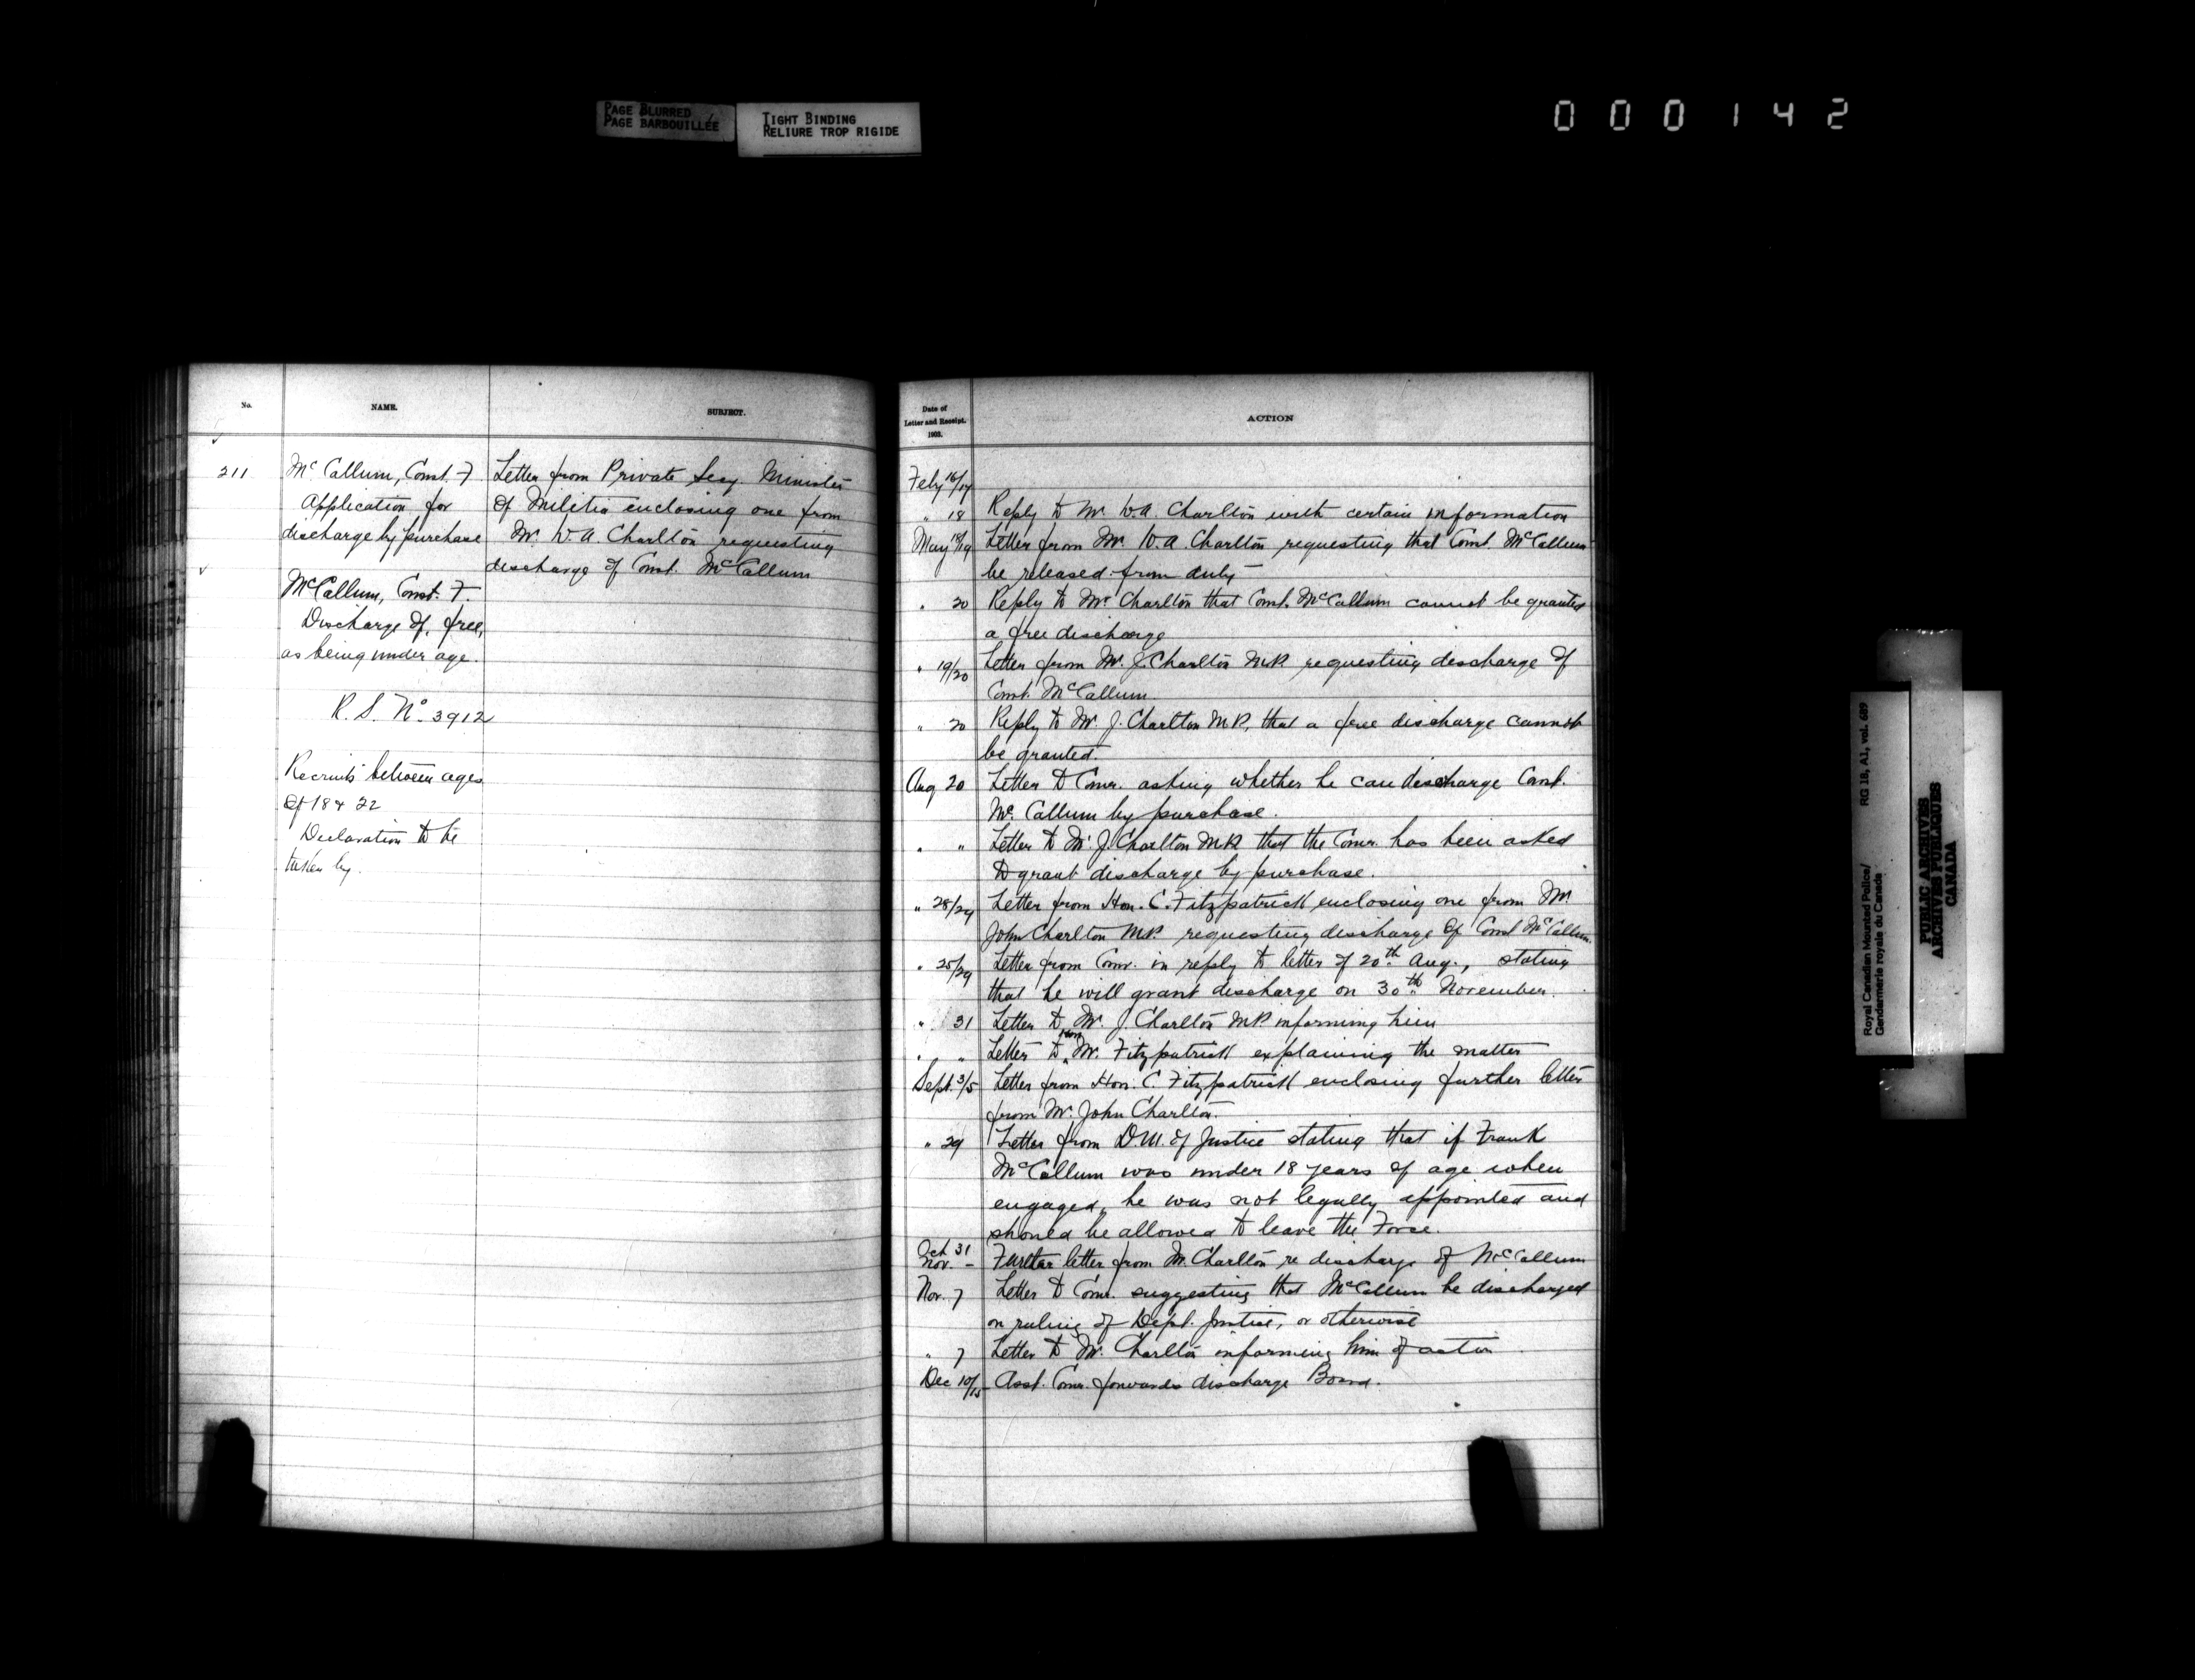 PAGE BLURRED
PAGE BARBOUILLÉE
TIGHT BINDING
RELIURE TROP RIGIDE
000142
No.
NAME.
SUBJECT.
211
McCallum, Const. F.
Application for
discharge by purchase
McCallum, Const. F.
Discharge of, free,
as being under age.
R. S. No. 3912
Recruits between ages
of 18 & 22
Declaration to be
taken by.
Letter from Private Secy. Minister
of Militia enclosing one from
Mr. W. A. Charlton requesting
discharge of Const. McCallum
Date of
Letter and Receipt.
1903.
ACTION
Feby 16/17
" 18 Reply to Mr. W. A. Charlton with certain information
May 18/19 Letter from Mr. W. A. Charlton requesting that Const. McCallum
be released from duty
" 20 Reply to Mr Charlton that Const. McCallum cannot be granted
a free discharge
" 19/20 Letter from Mr. J. Charlton M.P. requesting discharge of
Const. McCallum.
" 20 Reply to Mr. J. Charlton M.P., that a free discharge cannot
be granted.
Aug 20 Letter to Comr. asking whether he can discharge Const.
McCallum by purchase.
" " Letter to Mr. J. Charlton M.P. that the Comr. has been asked
to grant discharge by purchase.
" 28/29 Letter from Hon. C. Fitzpatrick enclosing one from Mr.
John Charlton M.P. requesting discharge of Const McCallum.
" 25/29 Letter from Comr. in reply to letter of 20th Aug., stating
that he will grant discharge on 30th November.
" 31 Letter to Mr. J. Charlton M.P. informing him
" " Letter to Hon. Mr. Fitzpatrick explaining the matter
Sept. 3/5 Letter from Hon. C. Fitzpatrick enclosing further letter
from Mr. John Charlton.
" 29 Letter from D.M. of Justice stating that if Frank
McCallum was under 18 years of age when
engaged, he was not legally appointed and
should be allowed to leave the Force.
Oct 31
Nov. – Further letter from Mr. Charlton re discharge of McCallum
Nov. 7 Letter to Comr. suggesting that McCallum be discharged
on ruling of Dept. Justice, or otherwise
" 7 Letter to Mr. Charlton informing him of action
Dec 10/15 Asst. Comr. forwards discharge Board.
Royal Canadian Mounted Police/
Gendarmerie royale du Canada
RG 18, A1, vol. 689
PUBLIC ARCHIVES
ARCHIVES PUBLIQUES
CANADA